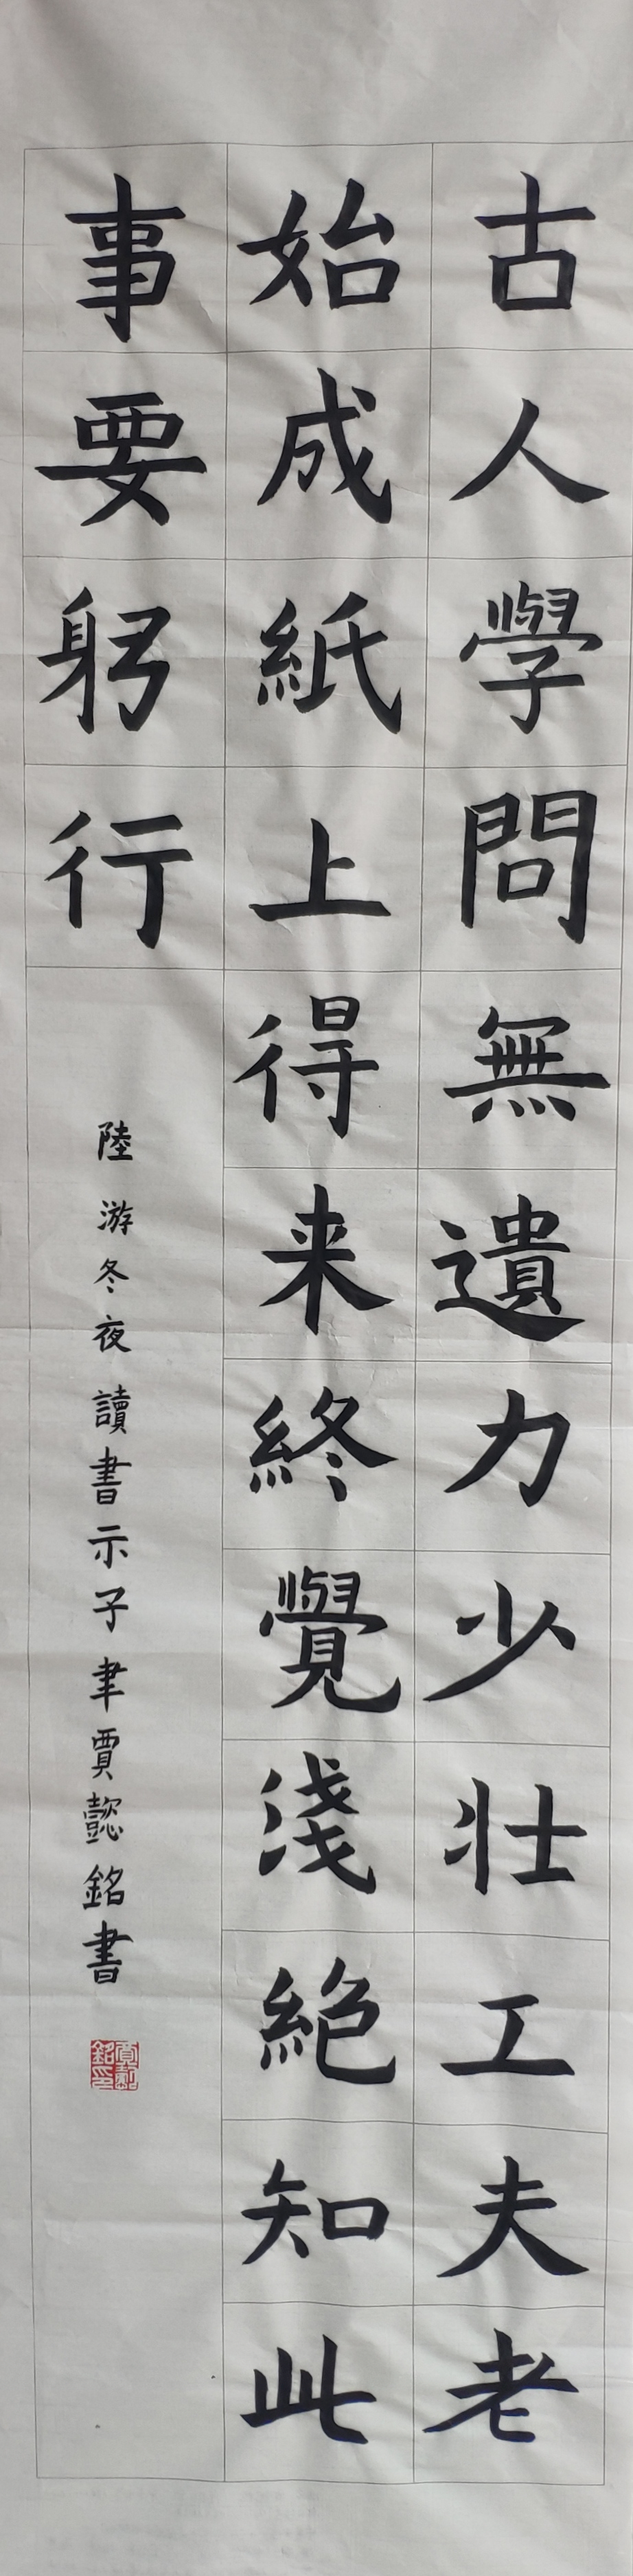 古人學問無遺力少壯工夫老
始成紙上得来終覺淺絕知此
事要躬行
陸游冬夜讀書示子聿賈懿銘書
賈懿銘印